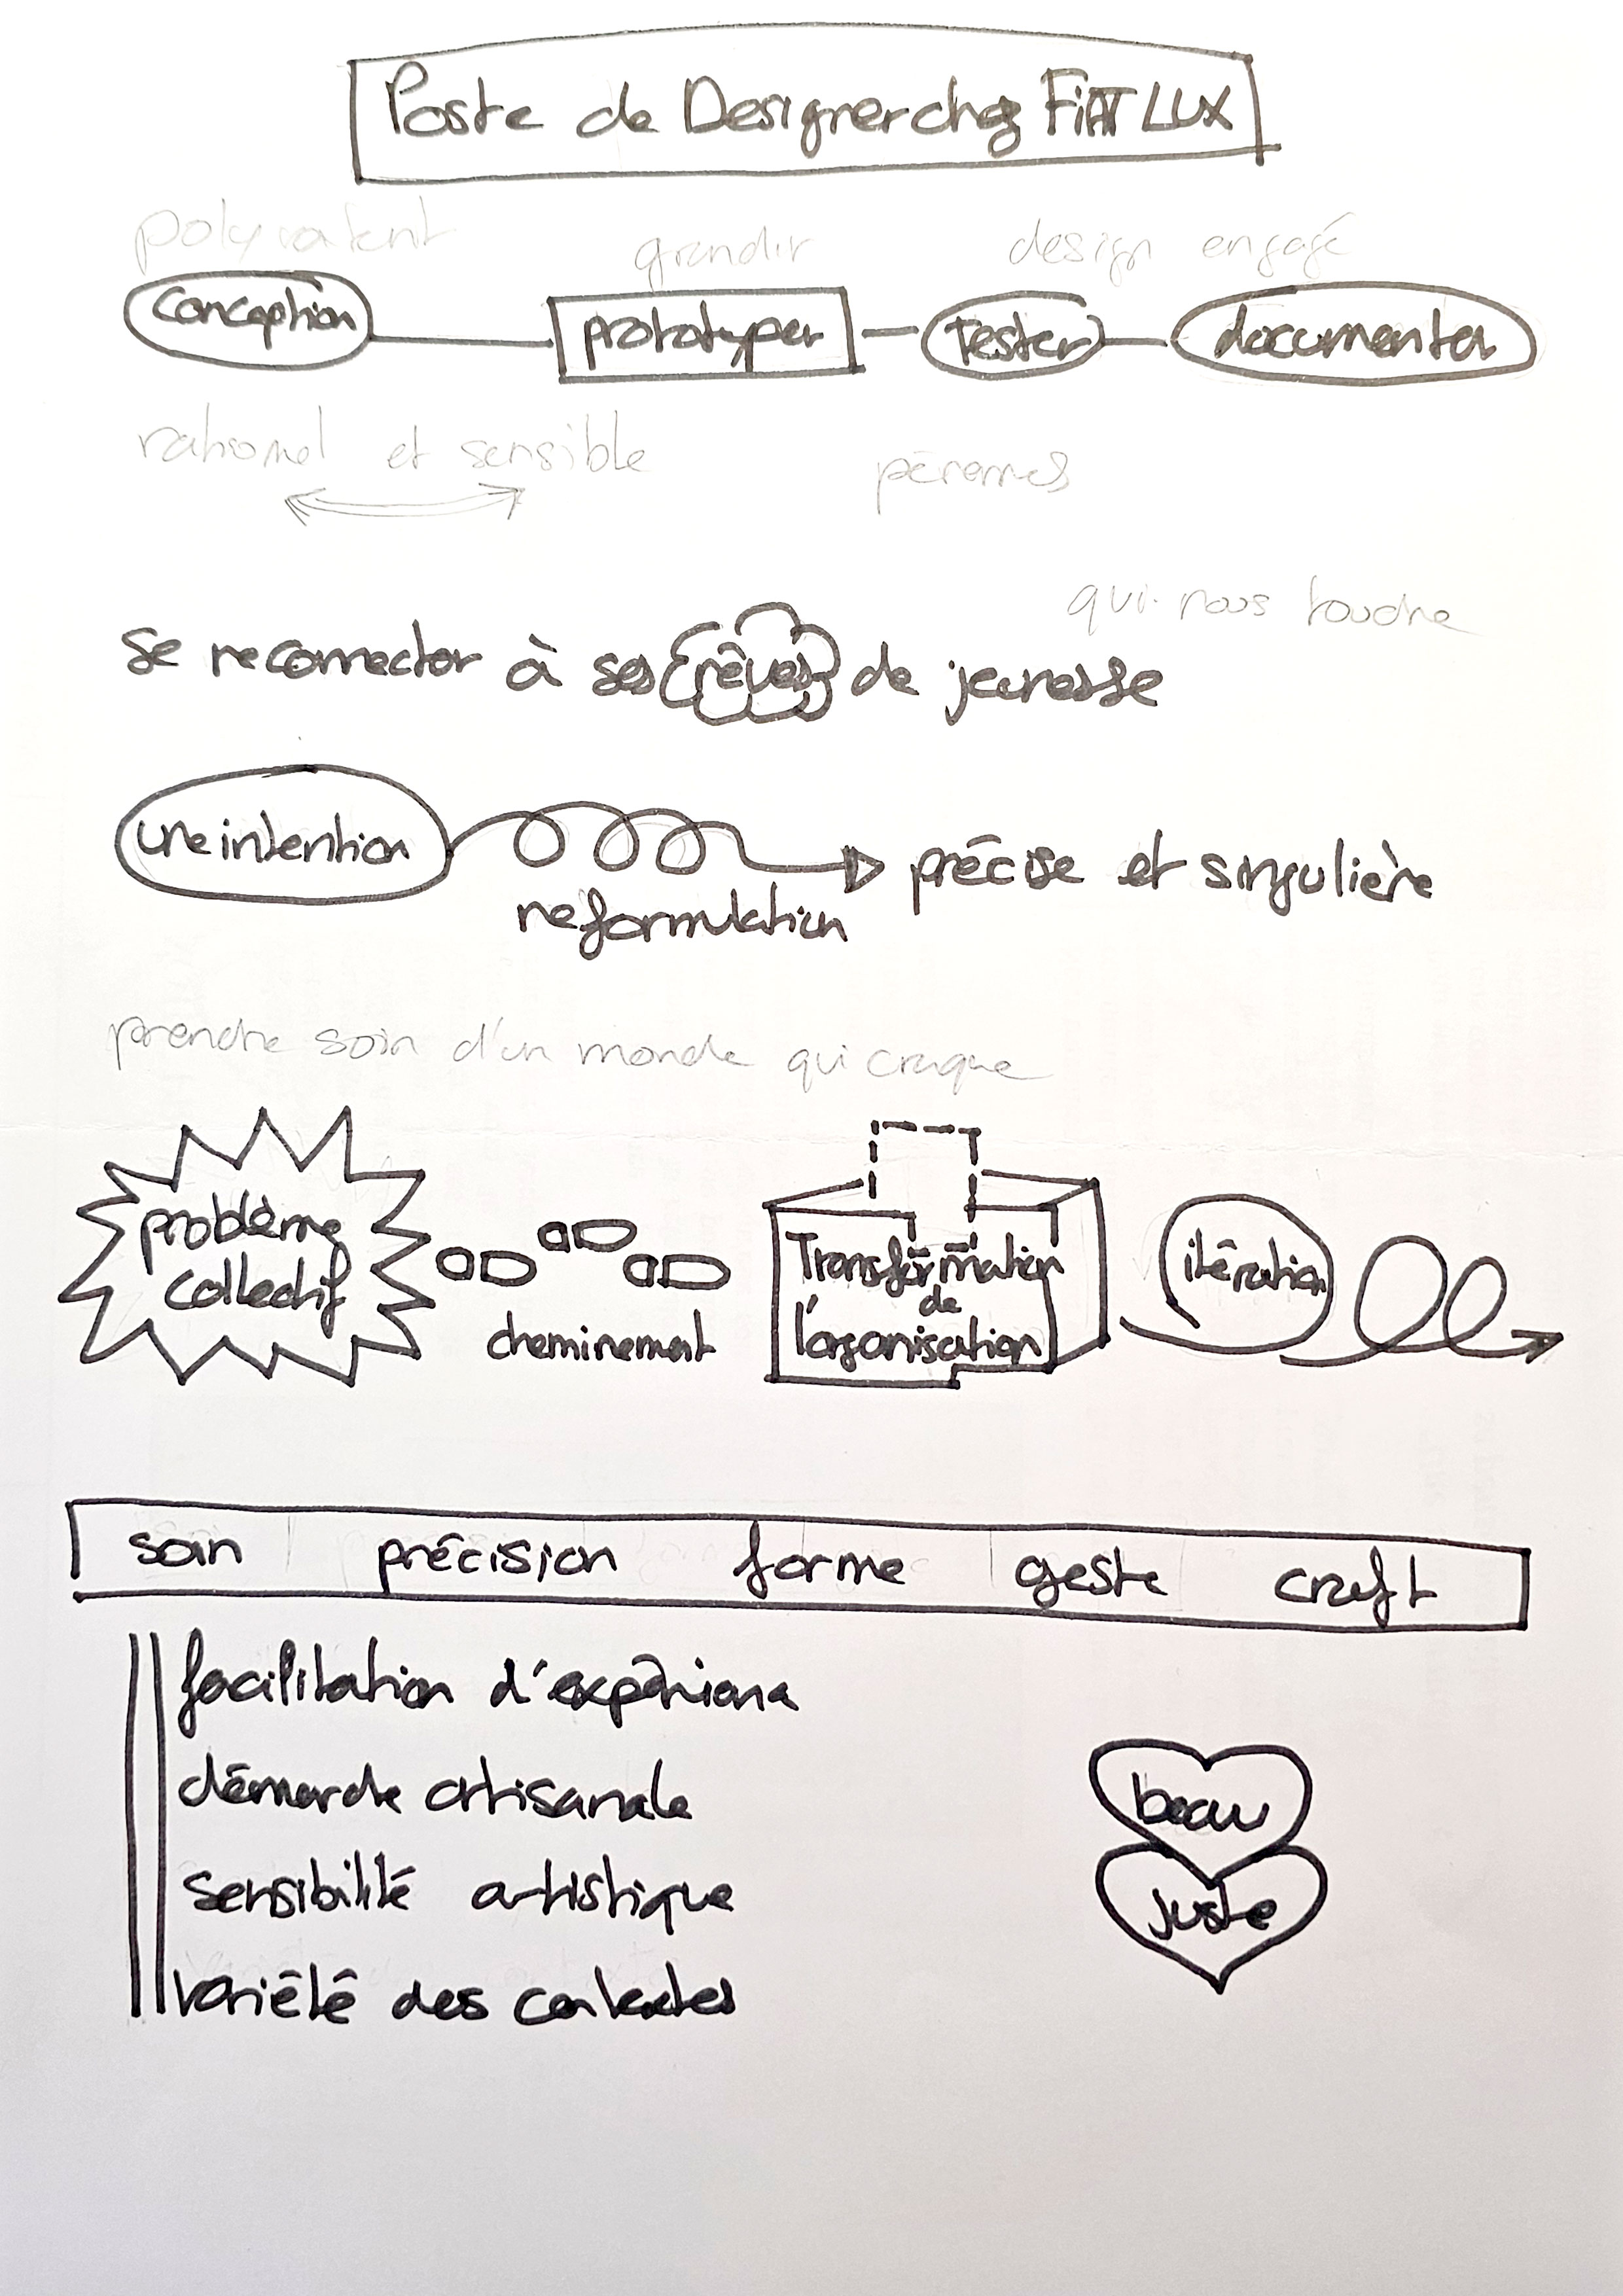 Poste de Designer chez FIAT LUX
polyvalent grandir design engagé
conception prototyper Tester documenter
rationnel et sensible pérennes
qui nous touche
se reconnecter à ses rêves de jeunesse
une intention précise et singulière
reformulation
prendre soin d'un monde qui craque
problème collectif
cheminement
Transformation de l'organisation
itération
soin précision forme geste craft
facilitation d'expérience
démarche artisanale
sensibilité artistique
variété des contextes
beau
juste